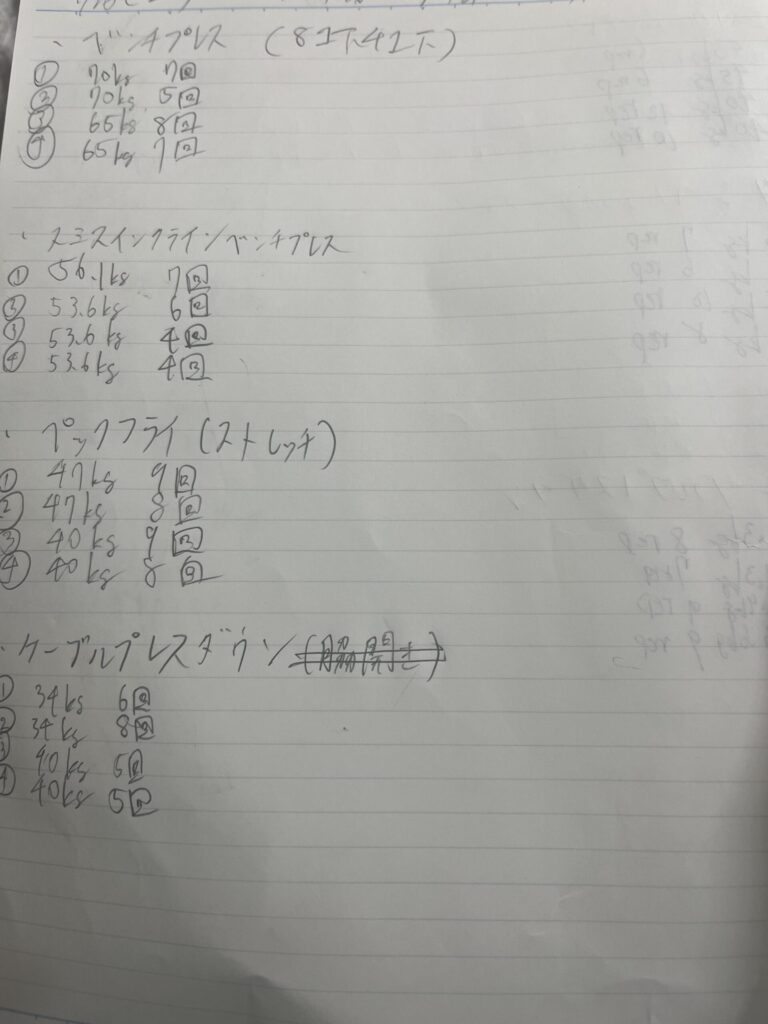 ・ベンチプレス (8上下4上下)
① 70kg 7回
② 70kg 5回
③ 65kg 8回
④ 65kg 7回
・スミスインクラインベンチプレス
① 56.1kg 7回
② 53.6kg 6回
③ 53.6kg 4回
④ 53.6kg 4回
・ペックフライ(ストレッチ)
① 47kg 9回
② 47kg 8回
③ 40kg 9回
④ 40kg 8回
・ケーブルプレスダウン
① 34kg 6回
② 34kg 8回
③ 40kg 6回
④ 40kg 5回